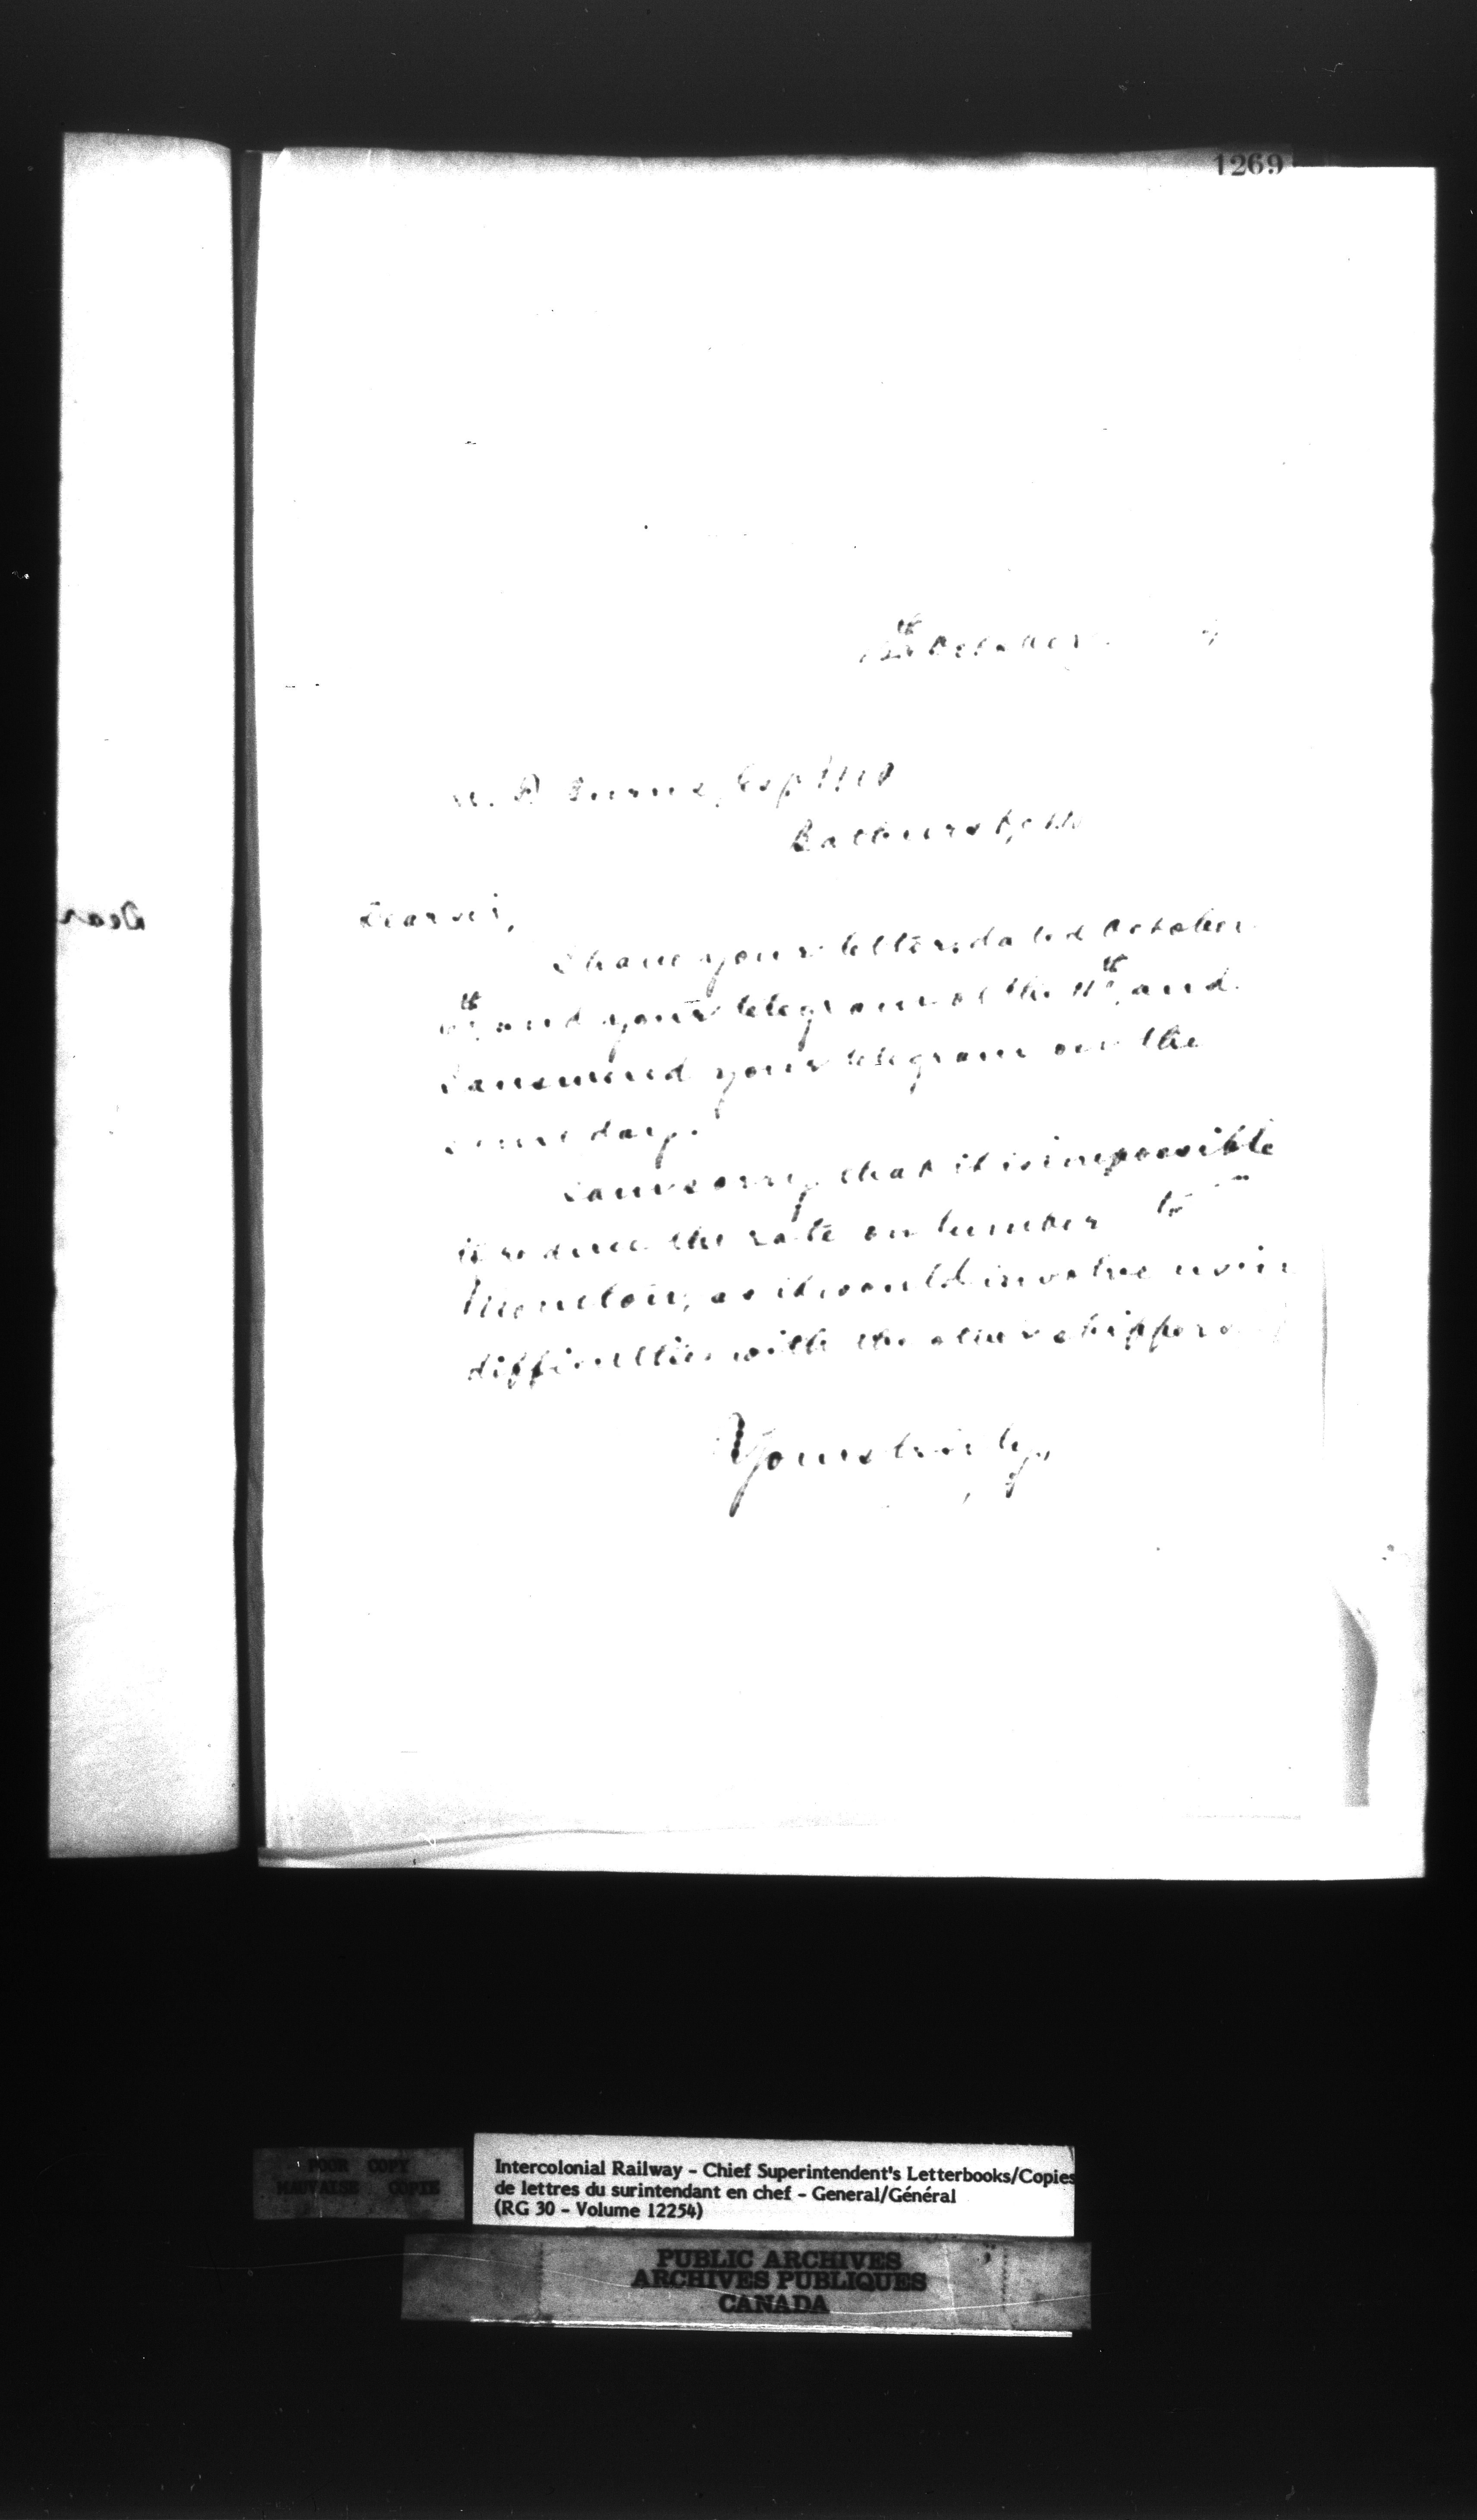 1269
12th October
Burns, Esq M.P
Bathurst, N.B.
Dear Sir,
I have your letter dated October
th and your telegram of the 11th, and
I answered your telegram on the
same day.
I am sorry that it is impossible
to reduce the rate on lumber to
Moncton, as it would involve us in
difficulties with the other shippers
Yours truly,
Dear
POOR COPY
MAUVAISE COPIE
Intercolonial Railway - Chief Superintendent's Letterbooks/Copies
de lettres du surintendant en chef - General/Général
(RG 30 - Volume 12254)
PUBLIC ARCHIVES
ARCHIVES PUBLIQUES
CANADA